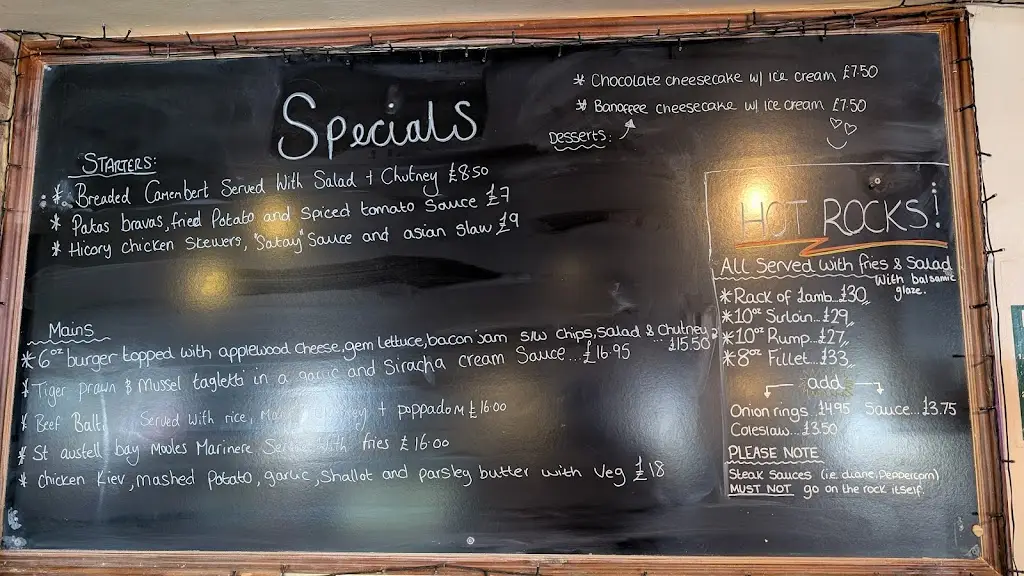 Specials
STARTERS:
* Breaded Camenbert Served With Salad + Chutney £8.50
* Patas bravas, fried Potato and Spiced tomato Sauce £7
* Hicory chicken Skewers, "Satay" Sauce and asian slaw £9
Mains
* 6oz burger topped with applewood cheese, gem lettuce, bacon jam S/w chips, salad & Chutney £15.50
* Tiger prawn & Mussel taglekti in a garlic and Siracha cream Sauce... £16.95
* Beef Balti Served with rice, + poppadom £16.00
* St austell bay Moules Marinere Served with fries £16.00
* Chicken Kiev, mashed Potato, garlic, shallot and parsley butter with veg £18
* Chocolate cheesecake w/ Ice cream £7.50
* Banoffee cheesecake w/ Ice cream £7.50
Desserts:
HOT ROCKS!
All Served with fries & Salad
With balsamic
glaze.
* Rack of Lamb... £30
* 10oz Surloin... £29
* 10oz Rump... £27
* 8oz Fillet... £33
add
Onion rings £4.95 Sauce... £3.75
Coleslaw... £3.50
PLEASE NOTE
Steak Sauces (i.e. diane, Peppercorn)
MUST NOT go on the rock itself.